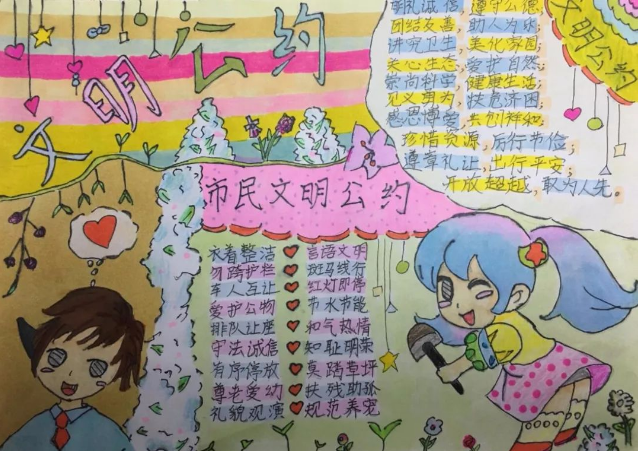 文明公约
朝礼诚信,遵守公德;
团结友善,助人为乐;
讲究卫生,美化家园;
关心生态,爱护自然;
崇尚科学,健康生活;
见义勇为,扶危济困;
感恩博爱,共创祥和;
珍惜资源,厉行节俭;
尊章礼让,出行平安;
开放超越,敢为人先。
文明公约
市民文明公约
衣着整洁 言语文明
勿跨护栏 斑马线行
车人互让 红灯即停
爱护公物 节水节能
排队让座 和气热情
守法诚信 知耻明荣
有序停放 莫踏草坪
尊老爱幼 扶残助孤
礼貌观演 规范养宠